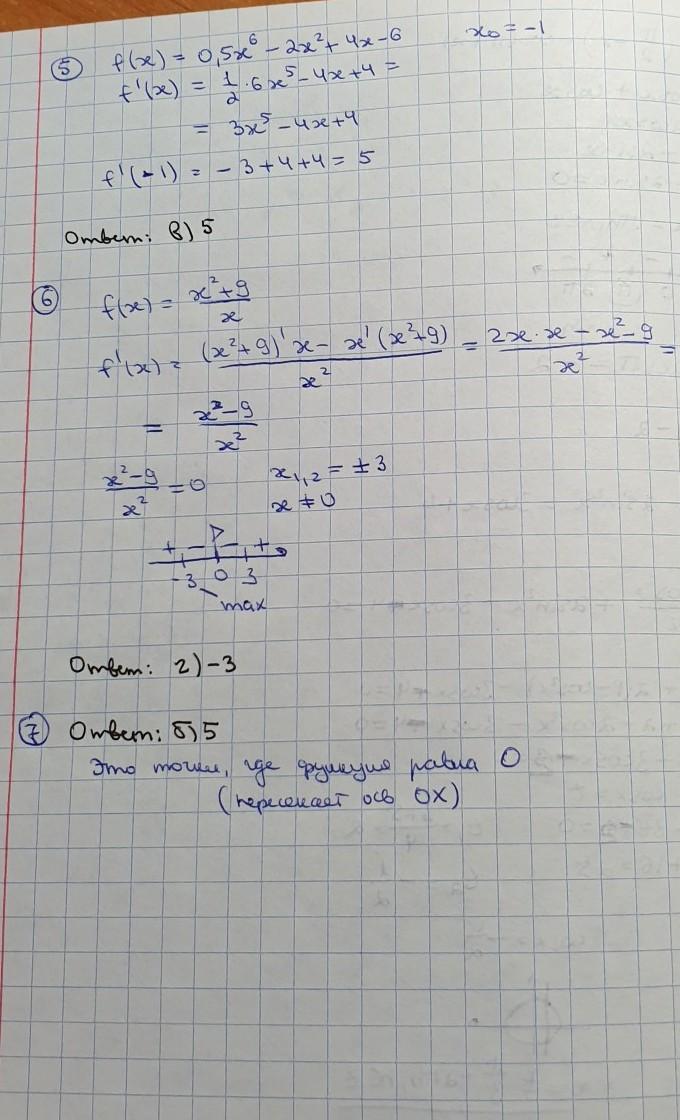 ⑤ f(x) = 0,5x⁶ - 2x² + 4x - 6    x₀ = -1
f'(x) = 1/2 · 6x⁵ - 4x + 4 =
= 3x⁵ - 4x + 4
f'(-1) = -3 + 4 + 4 = 5
Ответ: в) 5
⑥ f(x) = (x² + 9)/x
f'(x) = ((x² + 9)' x - x' (x² + 9))/x² = (2x · x - x² - 9)/x² =
= (x² - 9)/x²
(x² - 9)/x² = 0    x₁,₂ = ± 3
x ≠ 0
+ - - +
-3 0 3
max
Ответ: г) -3
⑦ Ответ: б) 5
Это точки, где функция равна 0
(пересекает ось OX)